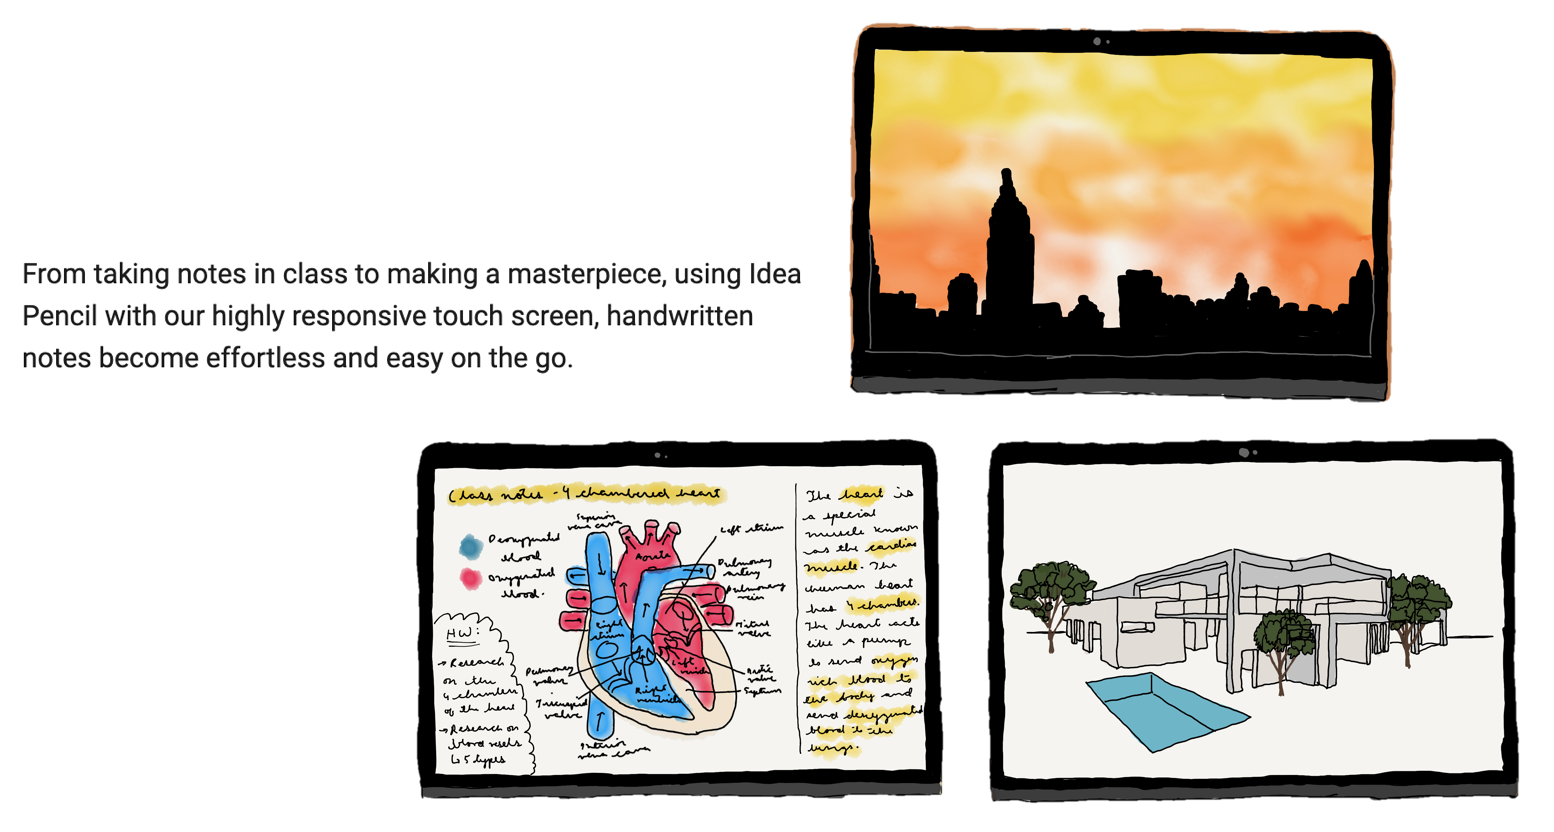 From taking notes in class to making a masterpiece, using Idea
Pencil with our highly responsive touch screen, handwritten
notes become effortless and easy on the go.
Class notes - 4 chambered heart
Deoxygenated
blood
Oxygenated
blood.
HW:
→ Research
on the
4 chambers
of the heart
→ Research on
blood vessels
↳ 5 types
Superior
vena cava
Aorta
Left atrium
Pulmonary
artery
Pulmonary
vein
Right
atrium
Pulmonary
valve
Left
Septum
Right
valve
Inferior
vena cava
The heart is
a special
muscle known
as the cardiac
muscle. The
human heart
has 4 chambers.
The heart acts
like a pump
to send oxygen
rich blood to
the body and
send
blood to the
lungs.